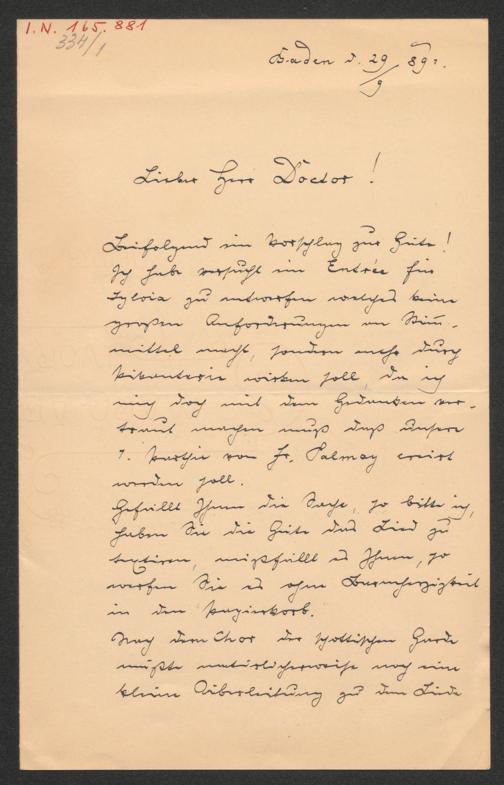 I.N. 165.881
334/1
Baden d. 29/9 89.
Lieber Herr Doctor!
Beifolgend ein Vorschlag zur Güte!
Ich habe versucht ein Entrée für
Sylvia zu entwerfen welches keine
großen Anforderungen an Stimm-
mittel macht, sondern mehr durch
Pikanterie wirken soll, da ich
mich doch mit dem Gedanken ver-
traut machen muß daß unsere
1. Parthie von Fr. Palmay creirt
werden soll.
Gefällt Ihnen die Sache, so bitte ich,
haben Sie die Güte das Lied zu
textiren, mißfällt es Ihnen, so
werfen Sie es ohne Barmherzigkeit
in den Papierkorb.
Nach dem Chor der schottischen Garde
müßte natürlicherweise noch eine
kleine Überleitung zu dem Liede